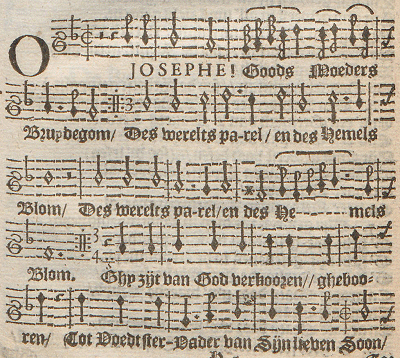 O JOSEPHE! Goods Moeders
Bruydegom/ Des werelts pa-rel/ en des Hemels
Blom/ Des werelts pa-rel/ en des He- - - - - mels
Blom. Ghy zijt van God verkooren// gheboo-
ren/ Tot Voedtster-Vader van Syn lieven Soon/